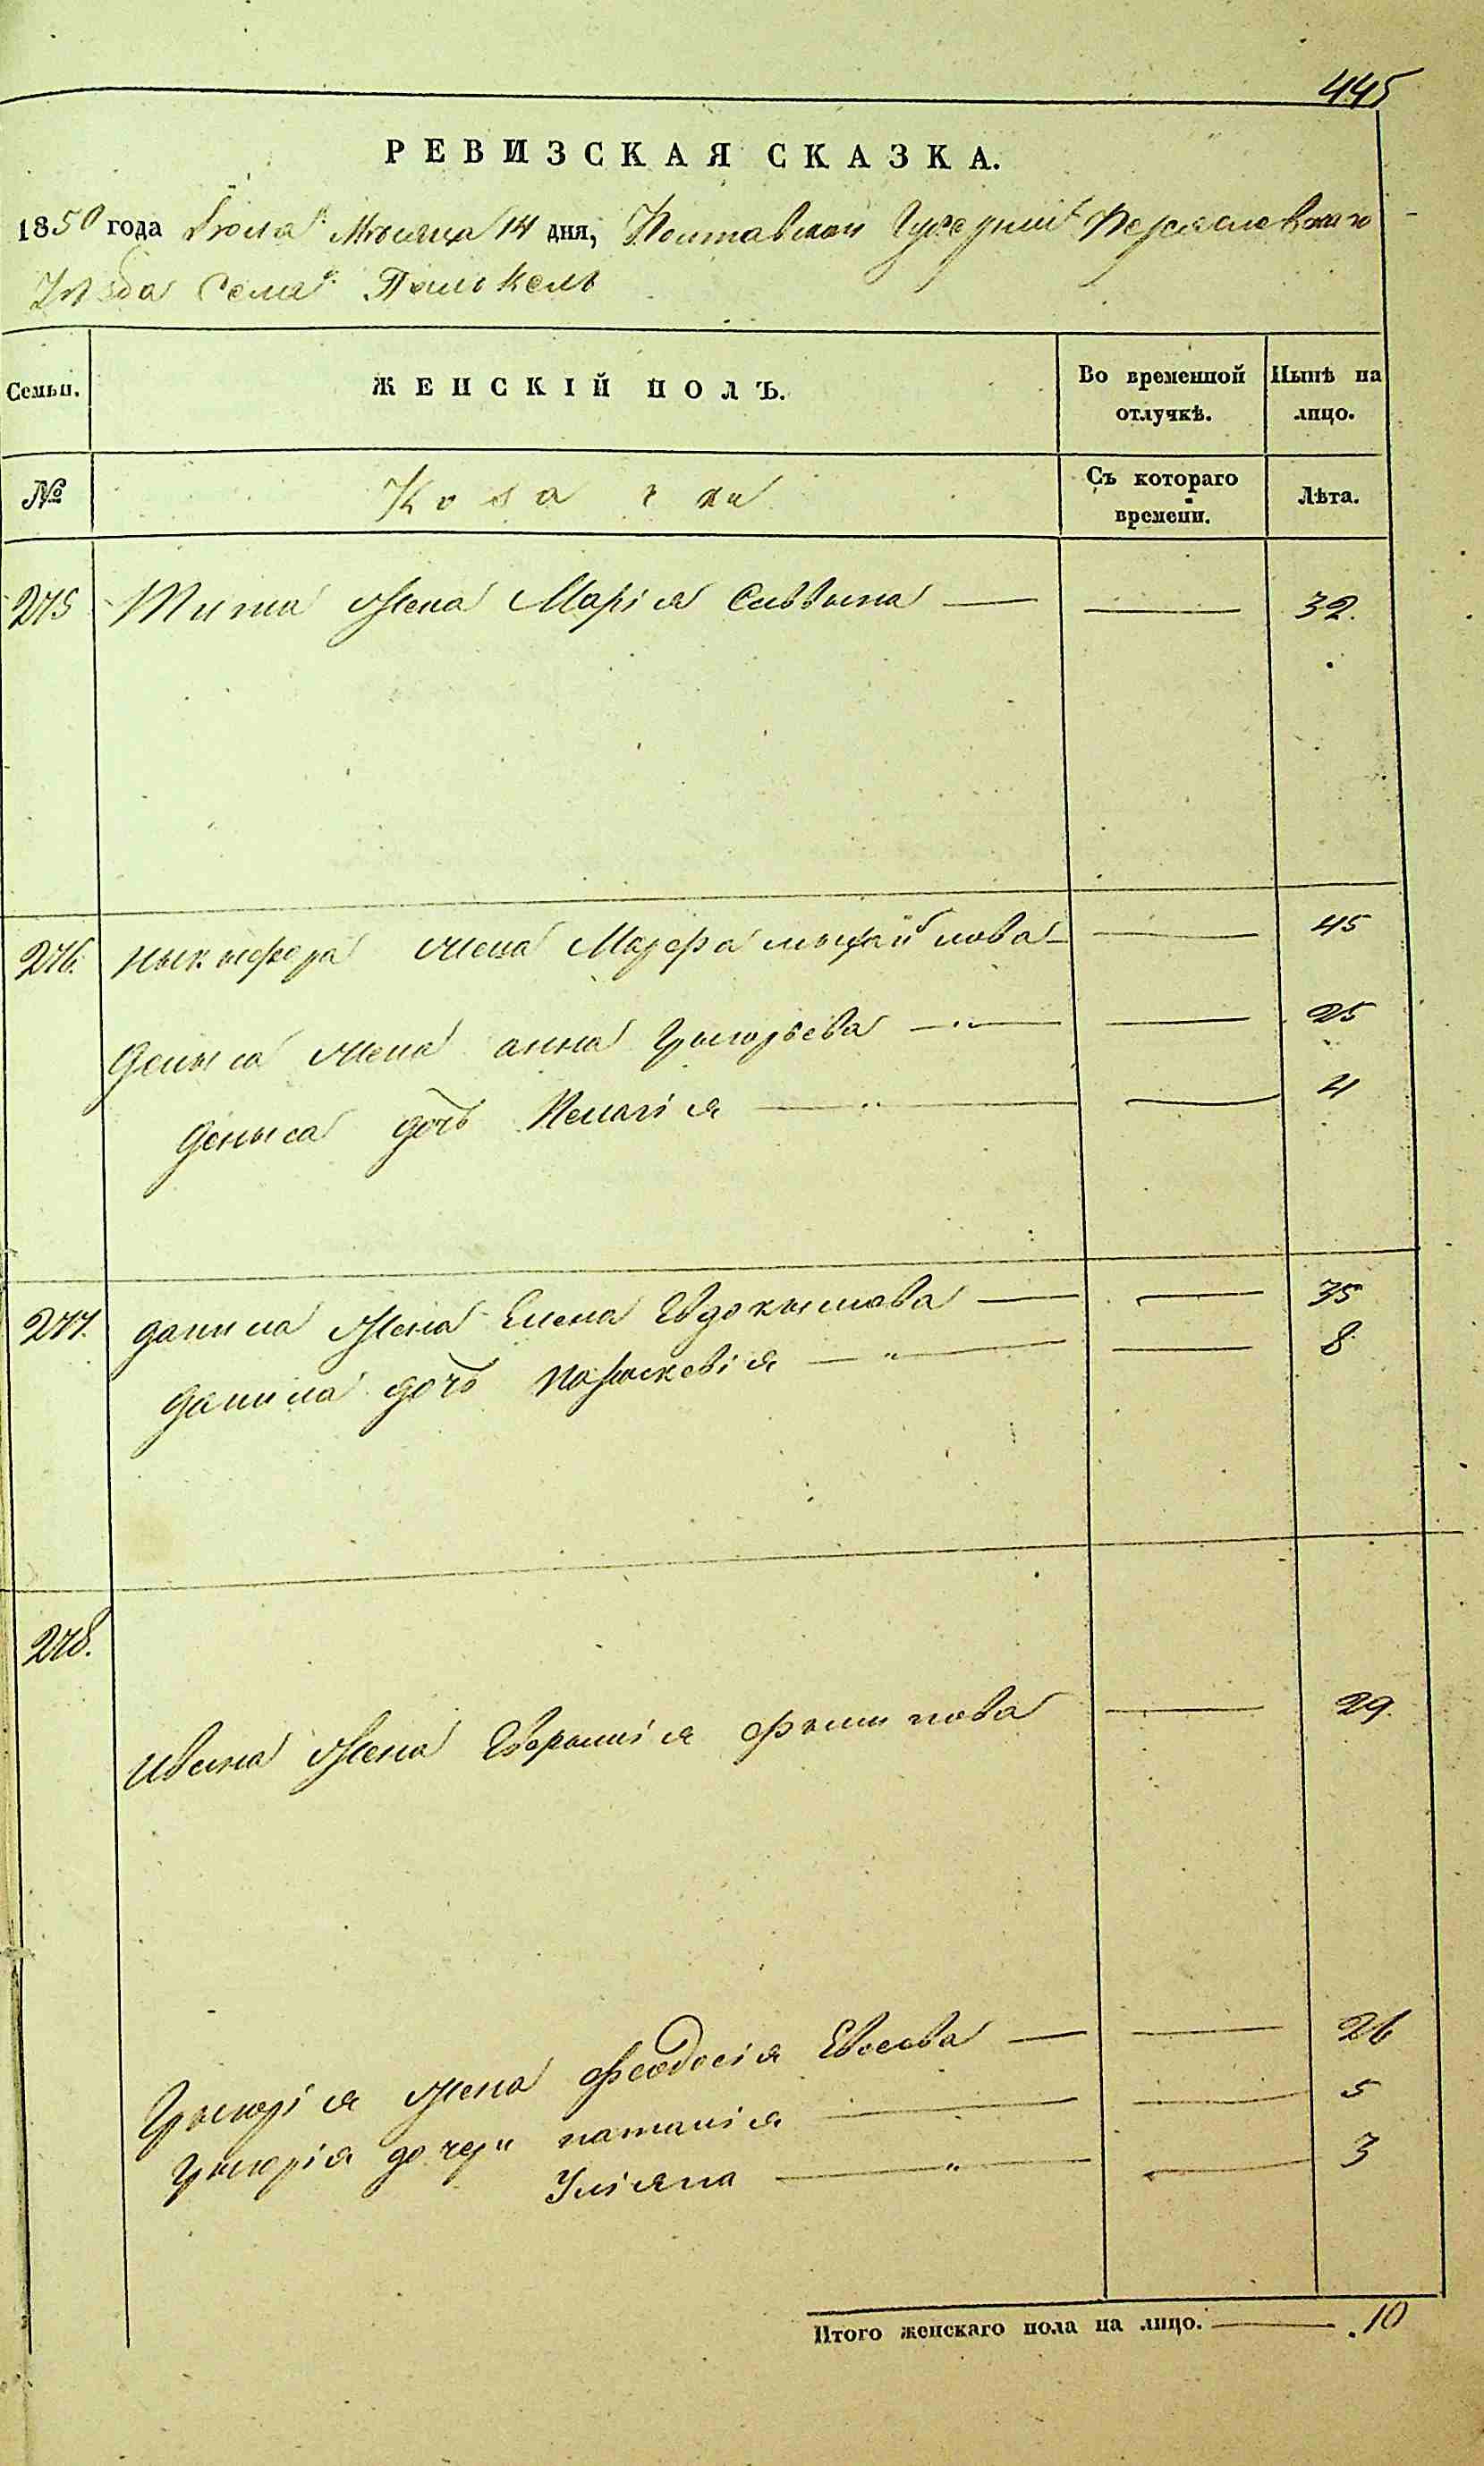 445
РЕВИЗСКАЯ СКАЗКА.
1850 года Июля Мѣсяца 14 дня, Полтавской Губерніи Переяславскаго
Уѣзда Села
Семьи. ЖЕНСКІЙ ПОЛЪ. Во временной отлучкѣ. Нынѣ на лицо.
№ Козачки Съ котораго времени. Лѣта.
275 Тита жена Марія Саввина — — 32.
276. Никифора жена Марфа Михайлова — — 45
Дениса жена Анна Григорьева — — 25
Дениса дочь Пелагія — " — — 4
277. Данила жена Елена Евдокимова — — 35
Данила дочь Параскевія — " — — 8
278.
Ивана жена Евфросинія Филипова — 29.
Григорія жена Феодосія — — 26
Григорія дочери Наталія — — 5
Уліяна — " — — 3
Итого женскаго пола на лицо. — 10